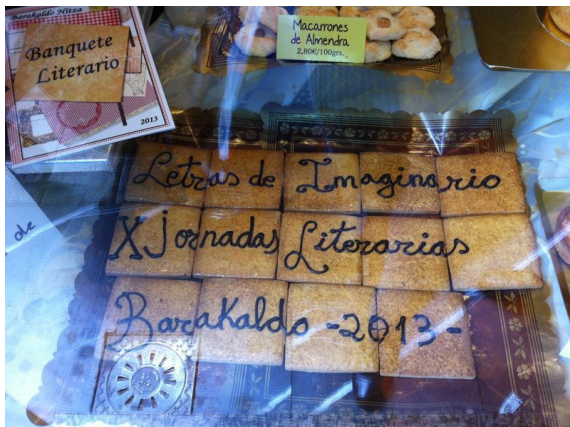 Barakaldo Hitza
Banquete
Literario
2013
Macarrones
de Almendra
2,80€/100grs.
Letras de Imaginario
X Jornadas Literarias
Barakaldo -2013-
ole